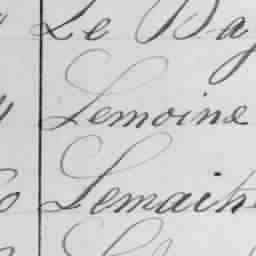 Le Ba
Lemoine
Lemait